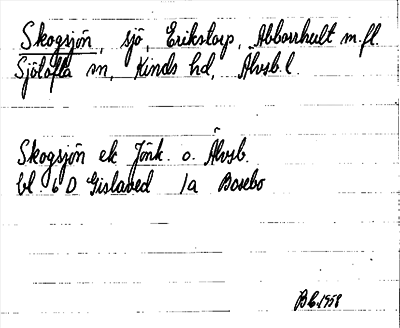 Skogsjön, sjö, Erikstorp, Abborrhult m.fl.
Sjötofta sn, Kinds hd, Älvsb. l.
Skogsjön ek Jönk. o. Älvsb.
bl 6 D Gislaved 1a Bosebo
1958